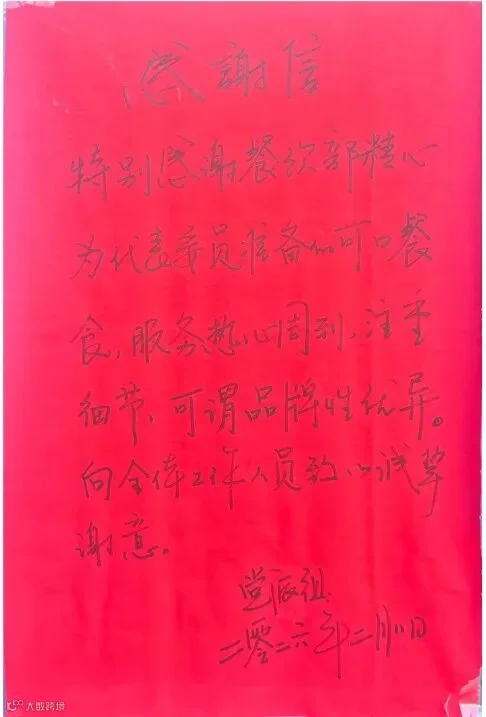 感謝信
特别感谢餐饮部精心
为代表委员准备的可口餐
食，服务热心周到，注重
细节，可谓品牌性优异。
向全体工作人员致以诚挚
谢意。
党派组
二零二六年二月八日
大数跨境